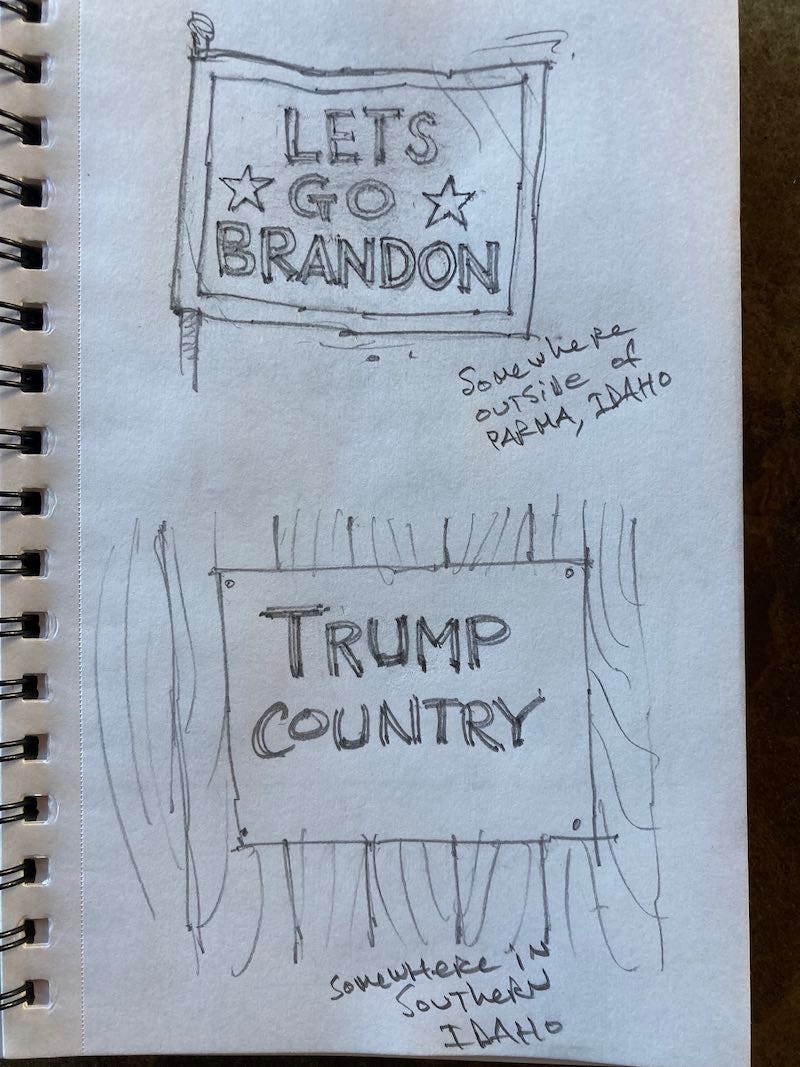 LETS
GO
BRANDON
Somewhere
outside of
PARMA, IDAHO
TRUMP
COUNTRY
somewhere in
Southern
IDAHO